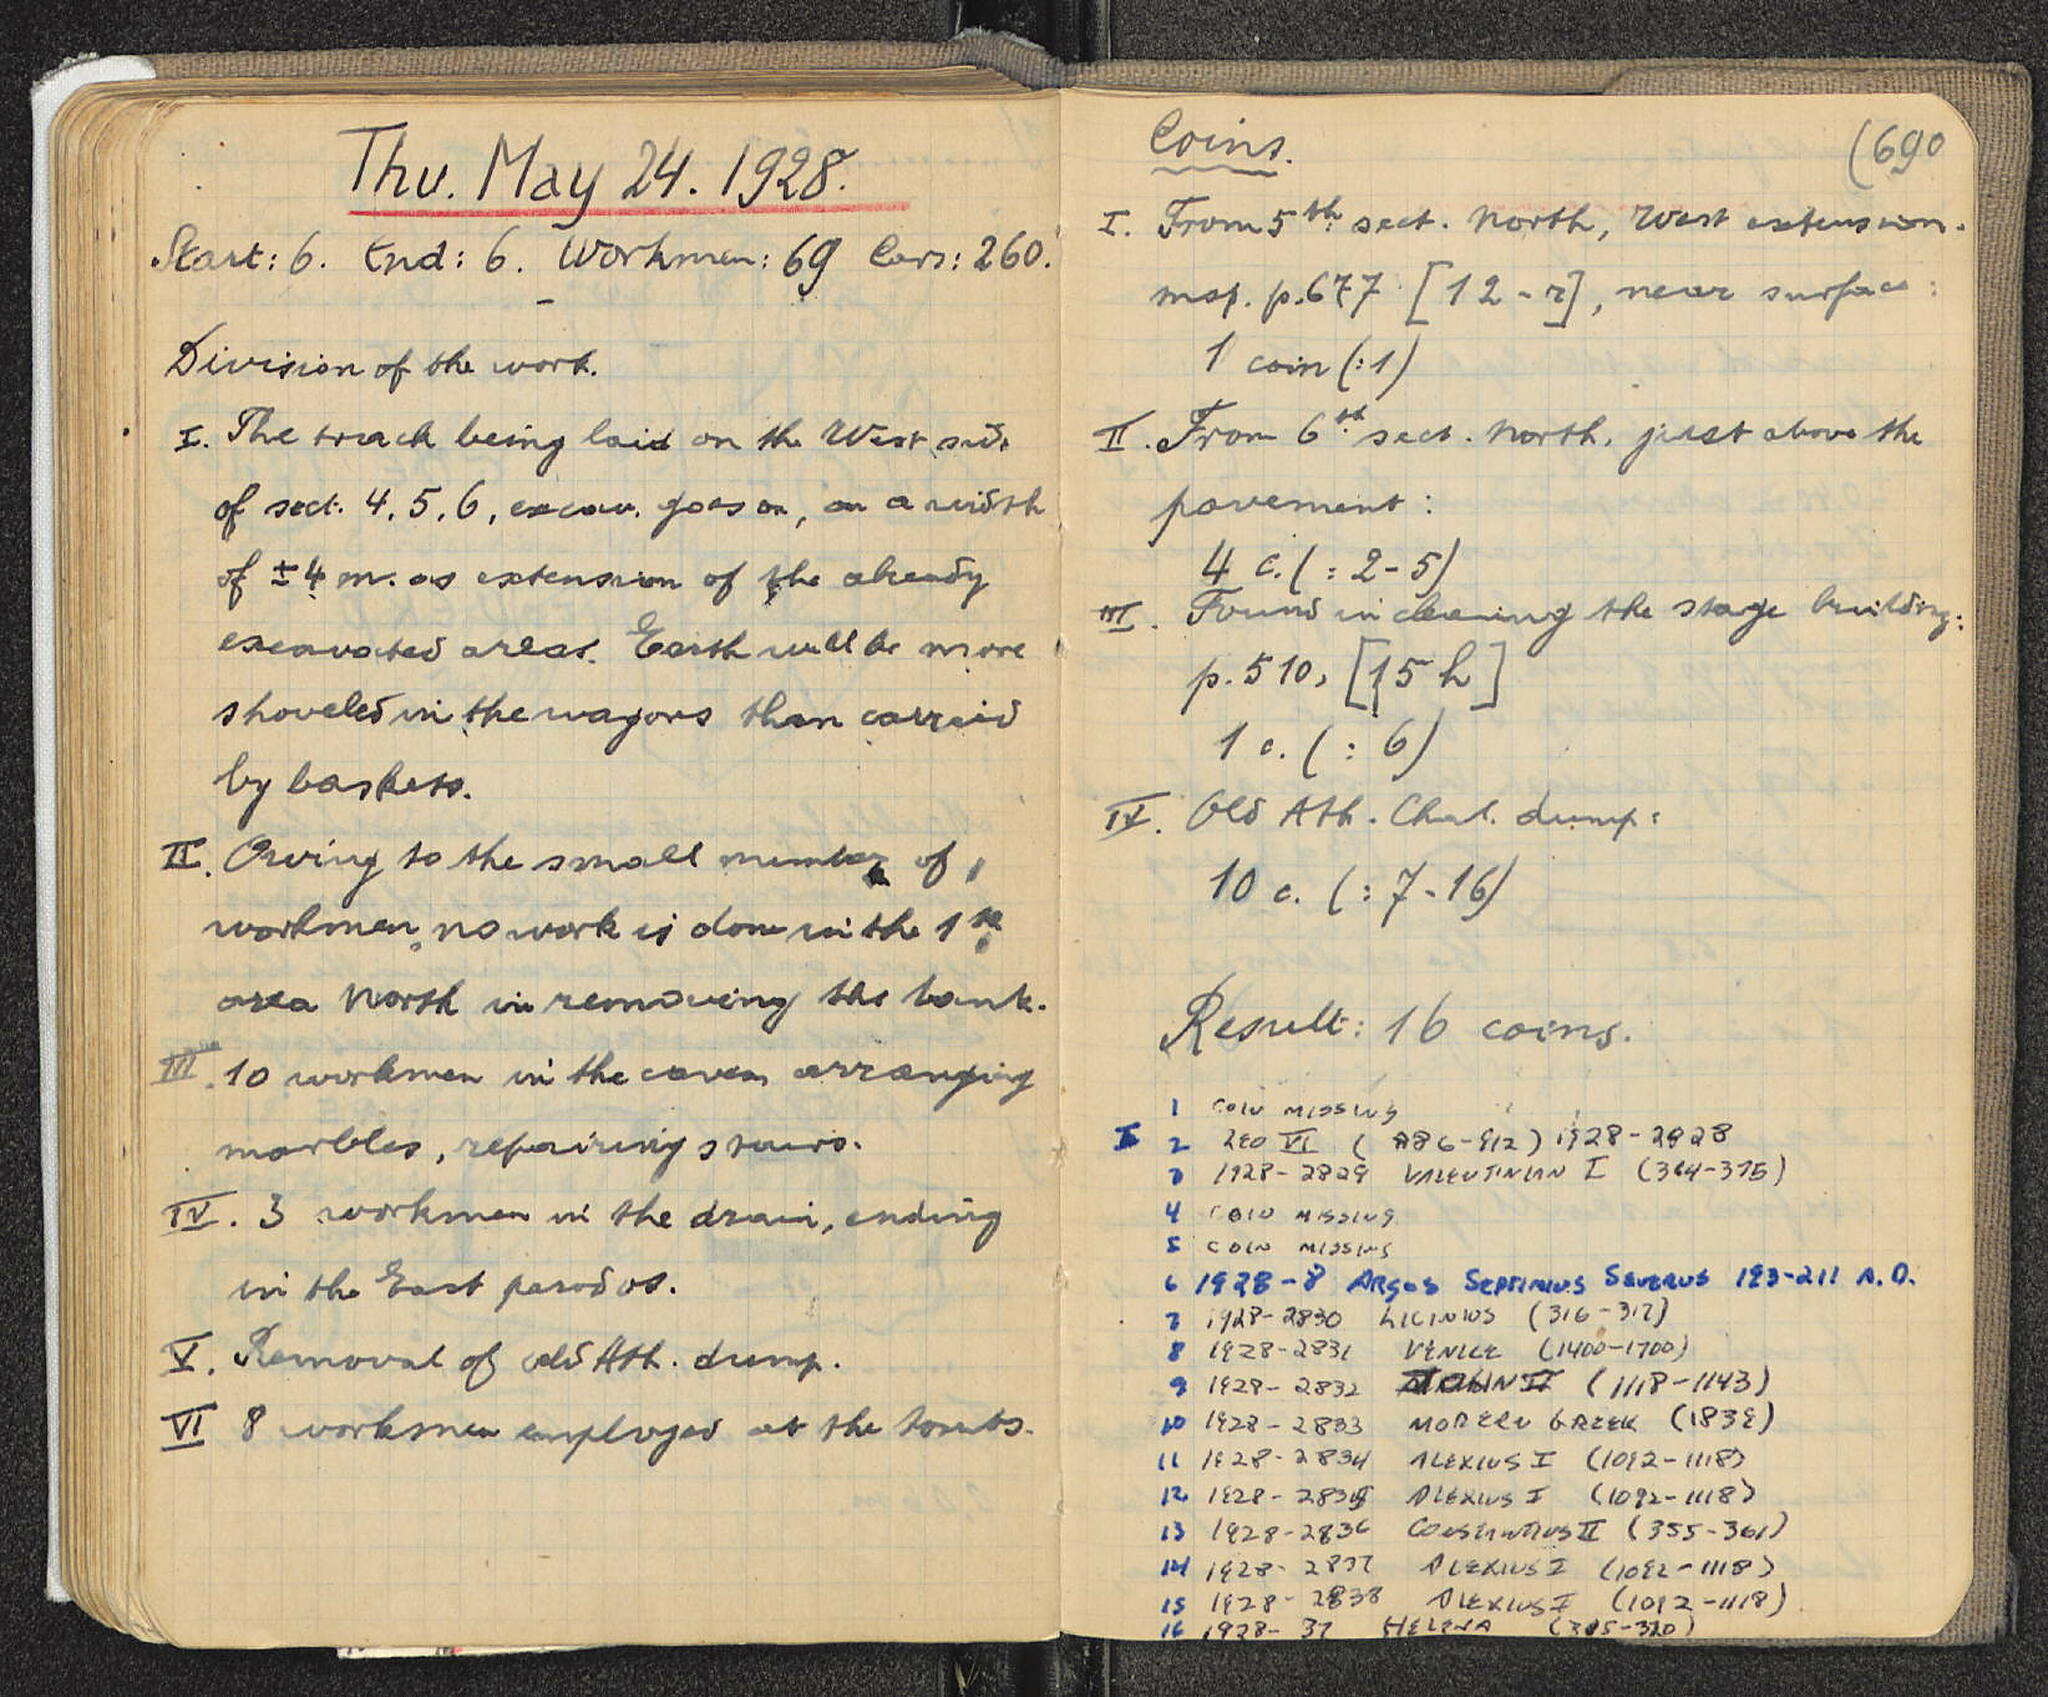 Thu. May 24. 1928.
Start: 6. End: 6. Workmen: 69 Cars: 260.
Division of the work.
I. The track being laid on the West side
of sect. 4, 5, 6, excav. goes on, on a width
of ± 4 m. as extension of the already
excavated areas. Earth will be more
shoveled in the wagons than carried
by baskets.
II. Owing to the small number of
workmen, no work is done in the 1st
area North in removing the bank.
III. 10 workmen in the cavea arranging
marbles, repairing stairs.
IV. 3 workmen in the drain, ending
in the East parodos.
V. Removal of old Ath. dump.
VI 8 workmen employed at the tombs.
Coins.
(690
I. From 5th sect. North, West extension.
msp. p. 677 [12-r], near surface:
1 coin (:1)
II. From 6th sect. North, just above the
pavement:
4 c. (: 2-5)
III. Found in cleaning the stage building:
p. 510, [15 h]
1 c. (: 6)
IV. Old Ath. Chal. dump:
10 c. (: 7-16)
Result: 16 coins.
1 COIN MISSING
2 LEO VI (886-912) 1928-2828
3 1928-2829 VALENTINIAN I (364-375)
4 COIN MISSING
5 COIN MISSING
6 1928-8 ARGOS SEPTIMIUS SEVERUS 193-211 A.D.
7 1928-2830 LICINIUS (316-317)
8 1928-2831 VENICE (1400-1700)
9 1928-2832 JOHN II (1118-1143)
10 1928-2833 MODERN GREEK (1839)
11 1928-2834 ALEXIUS I (1092-1118)
12 1928-2835 ALEXIUS I (1092-1118)
13 1928-2836 CONSTANTIUS II (355-361)
14 1928-2837 ALEXIUS I (1092-1118)
15 1928-2838 ALEXIUS I (1092-1118)
16 1928-37 HELENA